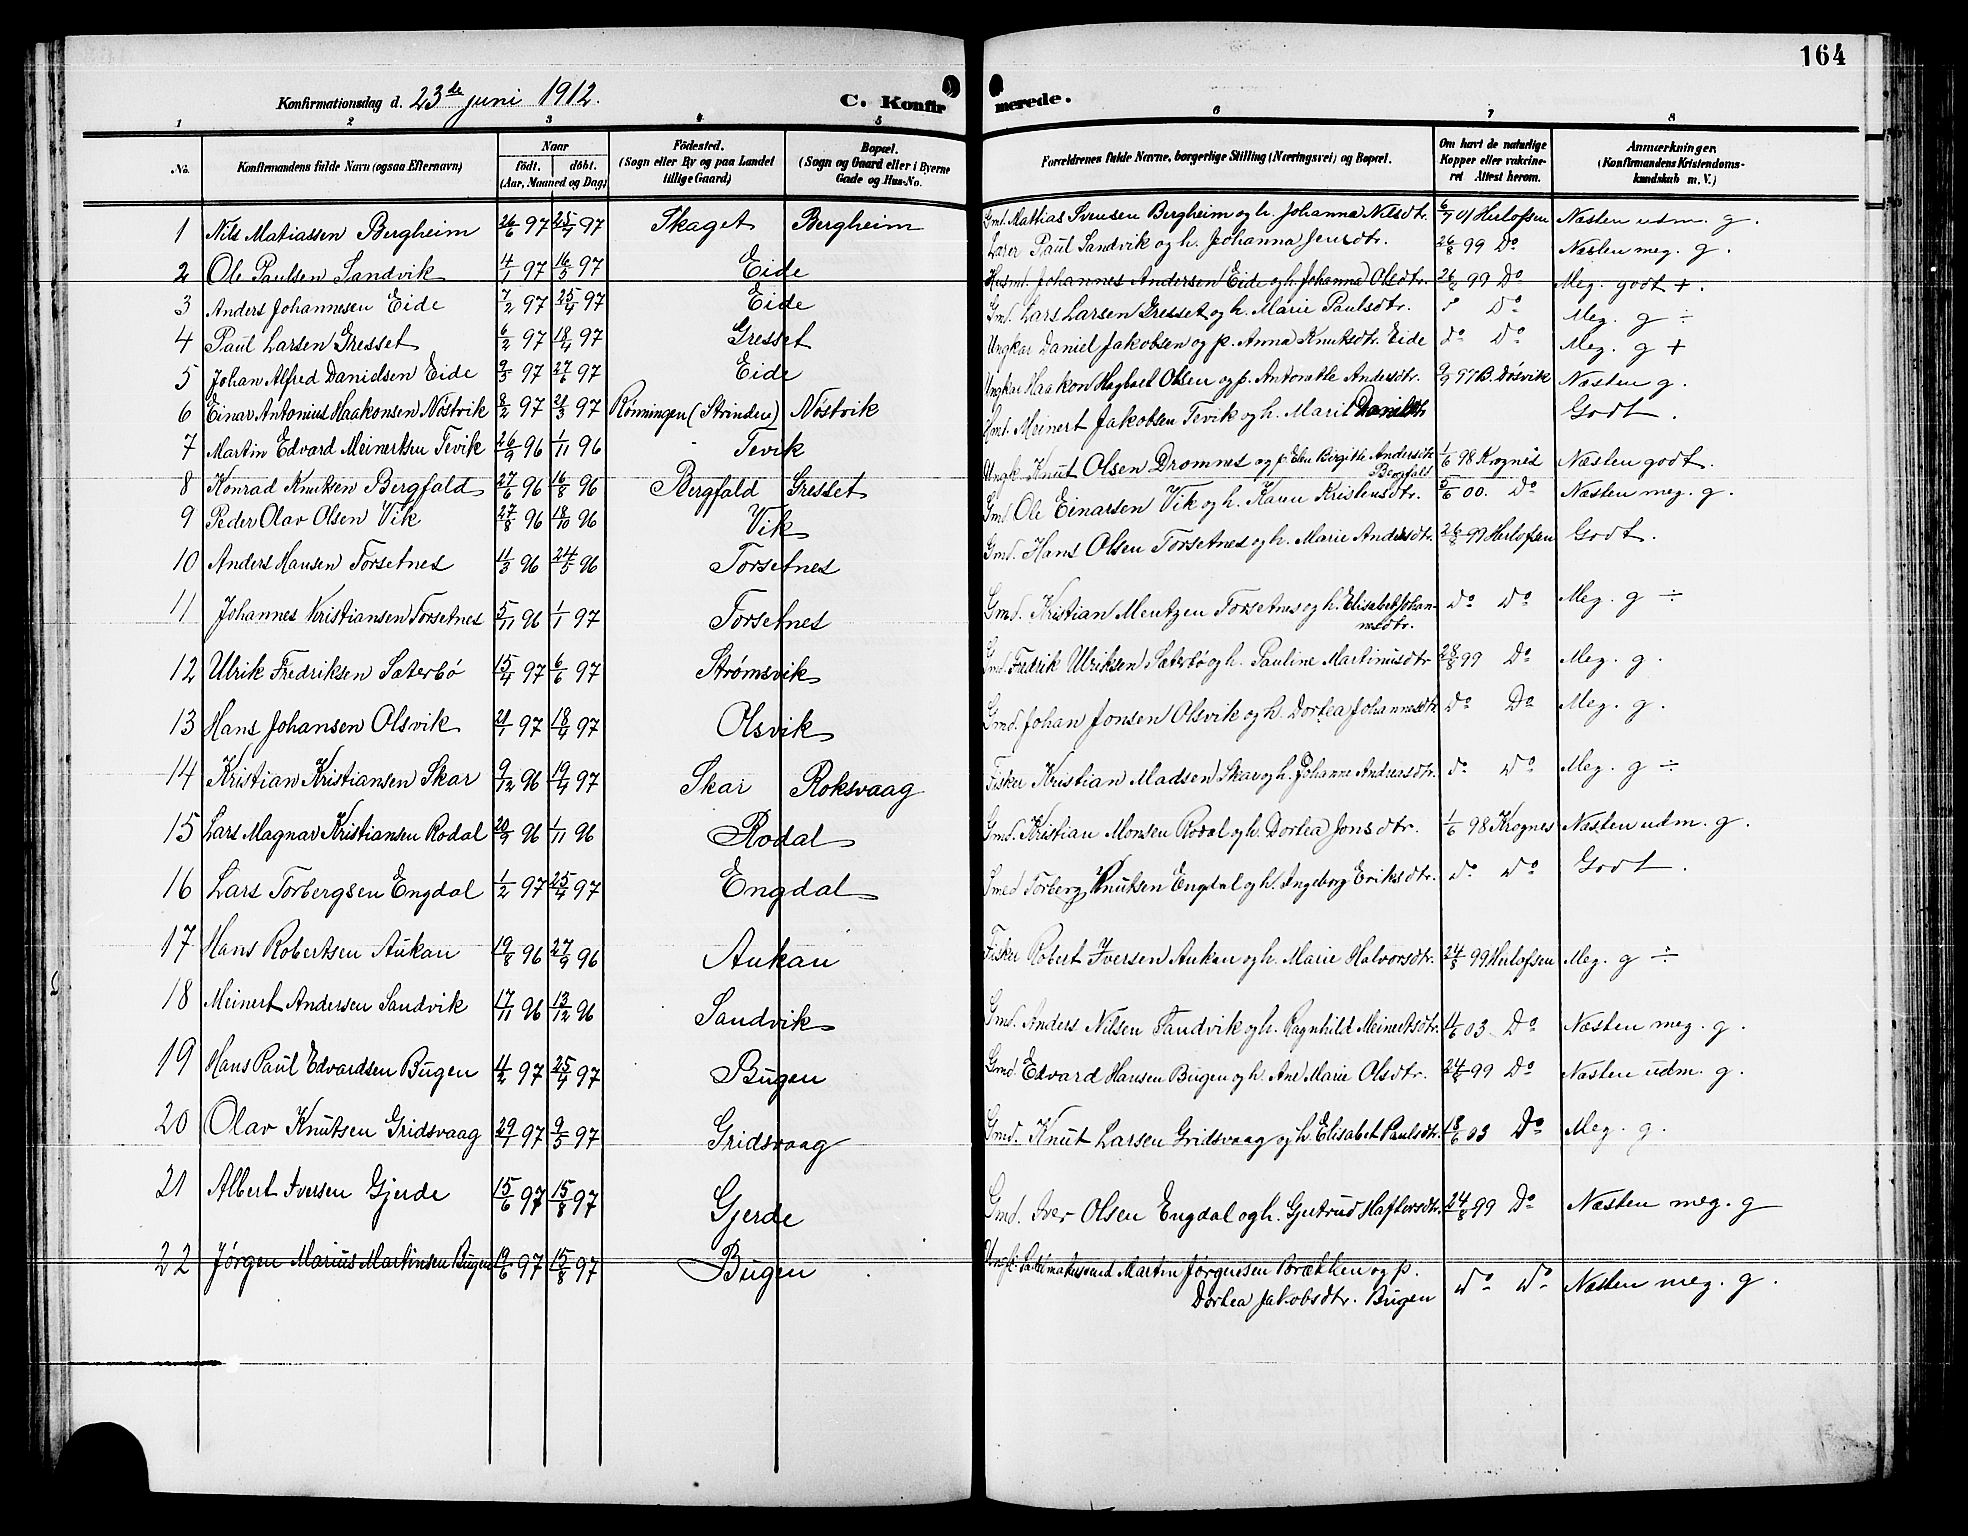 164
Konfirmationsdag d. 23de juni 1912.
C. Konfirmerede.
1 2 3 4 5 6 7 8
No.
Konfirmandens fulde Navn (ogsaa Efternavn)
Naar
født. døbt.
(Aar, Maaned og Dag)
Fødested.
(Sogn eller By og paa Landet
tillige Gaard)
Bopæl.
(Sogn og Gaard eller i Byerne
Gade og Hus-No.
Forældrenes fulde Navne, borgerlige Stilling (Næringsvei) og Bopæl.
Om havt de naturlige
Kopper eller vakcine-
ret Attest herom.
Anmærkninger.
(Konfirmandens Kristendoms-
kundskab m. V.)
1 Nils Matiassen Bergheim 26/6 97 25/7 97 Skaget Bergheim Gmd. Mathias Svensen Bergheim og h. Johanna Nilsdtr. 6/9 01 Herlofsen Næsten udm. g.
2 Ole Paulsen Sandvik 4/1 97 16/5 97 Eide Lærer Paul Sandvik og h. Johanna Jensdtr. 26/8 99 Do Næsten meg. g.
3 Anders Johannesen Eide 7/2 97 25/4 97 Eide Husmd. Johannes Andersen Eide og h. Johanna Olsdtr. 26/8 99 Do Meg. godt +.
4 Paul Larsen Gresset 6/2 97 18/4 97 Gresset Gmd. Lars Larsen Gresset og h. Marie Paulsdtr. do Do Meg. g ÷
5 Johan Alfred Danielsen Eide 9/5 97 27/6 97 Eide Ungkar Daniel Jakobsen og p. Anna Knutsdtr. Eide do Do Meg. g +
6 Einar Antonius Haakonsen Nøstvik 8/2 97 21/3 97 Rønningen (Strinden) Nøstvik Ungkar Haakon Hagbart Olsen og p. Antonette Andersdtr. 9/9 97 B. Døsvik Næsten g.
7 Martin Edvard Meinertsen Tevik 26/9 96 1/11 96 Tevik Gmd. Meinert Jakobsen Tevik og h. Marit Danilsdtr Godt.
8 Konrad Knutsen Bergfald 27/6 96 16/8 96 Bergfald Gresset Ungk. Knut Olsen Dromnes og p. Elen Birgitte Andersdtr
Bergfald 1/6 98 Krognes Næsten godt.
9 Peder Olav Olsen Vik 27/8 96 18/10 96 Vik Gmd. Ole Einarsen Vik og h. Karen Kristensdtr. 5/6 00. Do Næsten meg. g.
10 Anders Hansen Forsetnes 4/3 96 24/5 96 Forsetnes Gmd. Hans Olsen Forsetnes og h. Marie Andersdtr. 26/8 99 Herlofsen Godt.
11 Johannes Kristiansen Forsetnes 5/11 96 1/1 97 Forsetnes Gmd. Kristian Mentzen Forsetnes og h. Elisabet Johan-
nesdtr. Do Do Meg. g ÷
12 Ulrik Fredriksen Sæterbø 15/4 97 6/6 97 Strømsvik Gmd. Fedrik Ulriksen Sæterbø og h. Pauline Martinusdtr 28/8 99 Do Meg. g.
13 Hans Johansen Olsvik 21/1 97 18/4 97 Olsvik Gmd. Johan Jonsen Olsvik og h. Dortea Johannesdtr Do Do Meg. g.
14 Kristian Kristiansen Skar 9/12 96 19/4 97 Skar Roksvaag Fisker Kristian Madsen Skar og h. Johanne Andreasdtr. do Do Meg. g ÷
15 Lars Magnar Kristiansen Rodal 20/9 96 1/11 96 Rodal Gmd. Kristian Monsen Rodal og h. Dortea Jonsdtr. 1/6 98 Krognes Næsten udm. g.
16 Lars Torbergsen Engdal 1/2 97 25/4 97 Engdal Smed Torberg Knutsen Engdal og h. Ingeborg Eriksdtr. do Do Godt.
17 Hans Robertsen Aukan 19/8 96 27/9 96 Aukan Fisker Robert Iversen Aukan og h. Marie Halvorsdtr. 24/8 99 Herlofsen Meg. g ÷
18 Meinert Andersen Sandvik 17/11 96 13/12 96 Sandvik Gmd. Anders Nilsen Sandvik og h. Ragnhild Meinertsdtr. 11/6 03 Do Næsten meg. g.
19 Hans Paul Edvardsen Bugen 4/2 97 25/4 97 Bugen Gmd. Edvard Hansen Bugen og h. Ane Marie Olsdtr. 24/8 99 Do Næsten udm. g.
20 Olav Knutsen Gridsvaag 29/1 97 9/5 97 Gridsvaag Gmd. Knut Larsen Gridsvaag og h. Elisabet Paulsdtr. 18/6 03 Do Meg. g.
21 Albert Iversen Gjerde 15/6 97 15/8 97 Gjerde Gmd. Iver Olsen Engdal og h. Gjertrud Haftorsdtr. 24/8 99 Do Næsten meg. g
22 Jørgen Marius Martinsen Bugen 19/6 97 15/8 97 Bugen Ungk. Martin Jørgensen Brætten og p.
Dortea Jakobsdtr. Bugen Do Do Næsten meg. g.